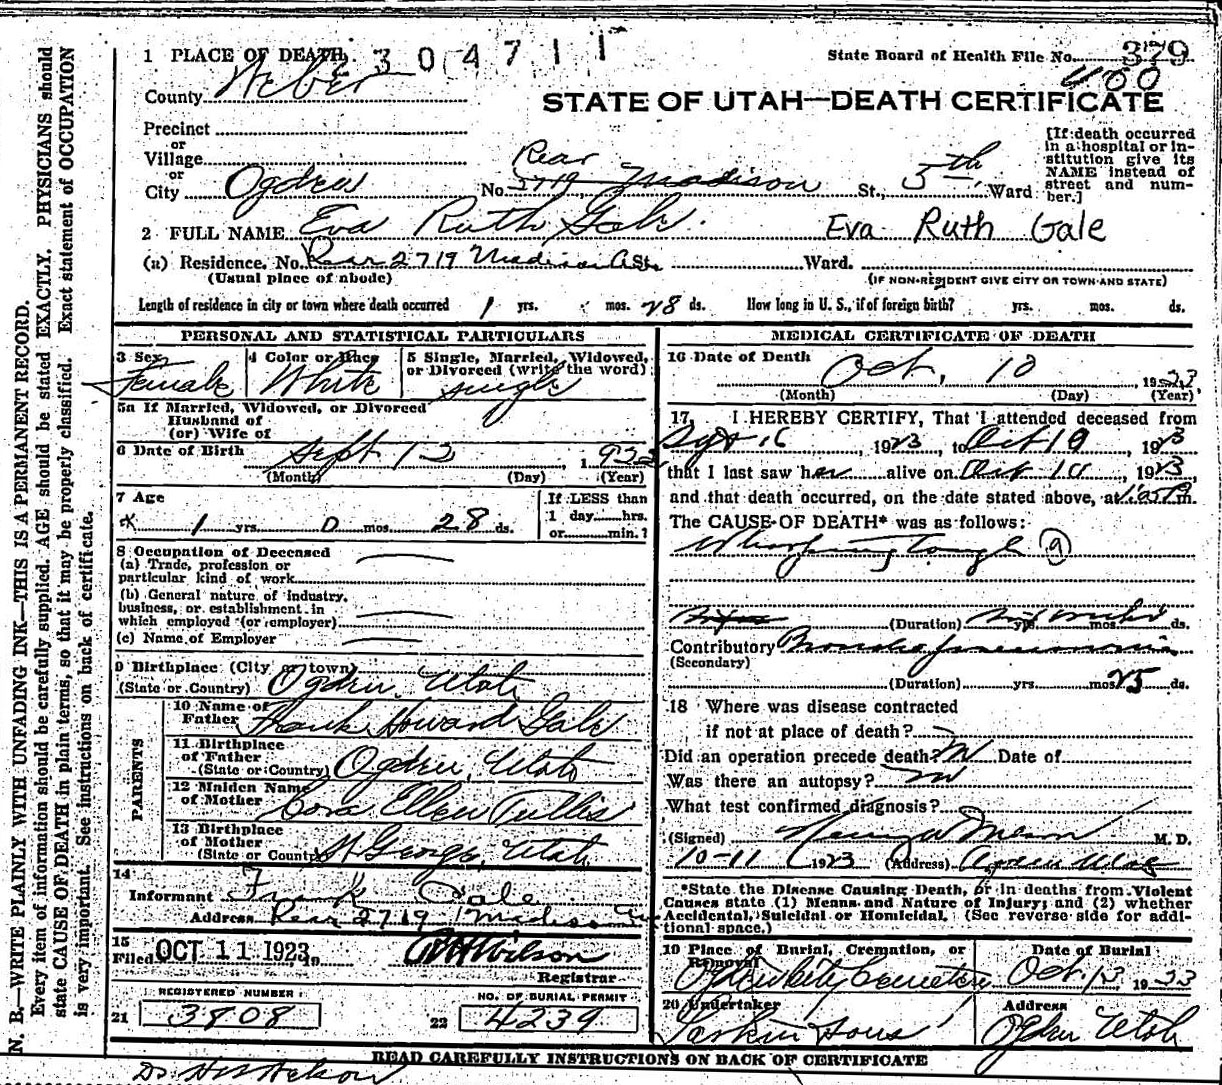 1 PLACE OF DEATH 304711 State Board of Health File No. 379
400
County Weber STATE OF UTAH—DEATH CERTIFICATE
Precinct
or
Village
or
City Ogden No. Rear 2719 Madison St., 5th Ward
[If death occurred in a hospital or institution give its NAME instead of street and number.]
2 FULL NAME Eva Ruth Gale. Eva Ruth Gale
(a) Residence. No. Rear 2719 Madison A St. Ward.
(Usual place of abode) (IF NON-RESIDENT GIVE CITY OR TOWN AND STATE)
Length of residence in city or town where death occurred 1 yrs. mos. 28 ds. How long in U. S., if of foreign birth? yrs. mos. ds.
PERSONAL AND STATISTICAL PARTICULARS
3 Sex Female
4 Color or Race White
5 Single, Married, Widowed, or Divorced (write the word) single
5a If Married, Widowed, or Divorced
Husband of
(or) Wife of
6 Date of Birth Sept 12 1922
(Month) (Day) (Year)
7 Age 1 yrs. 0 mos. 28 ds.
If LESS than
1 day hrs.
or min.?
8 Occupation of Deceased
(a) Trade, profession or
particular kind of work
(b) General nature of industry,
business, or establishment in
which employed (or employer)
(c) Name of Employer
9 Birthplace (City or town)
(State or Country) Ogden, Utah
PARENTS
10 Name of
Father Frank Howard Gale
11 Birthplace
of Father
(State or Country) Ogden, Utah
12 Maiden Name
of Mother Cora Ellen Tullis
13 Birthplace
of Mother
(State or Country) St George, Utah
14
Informant Frank Gale
Address Rear 2719 Madison Ave
15
Filed OCT 11 1923, 19 Wilson
Registrar
REGISTERED NUMBER
21 3808
NO. OF BURIAL PERMIT
22 4239
MEDICAL CERTIFICATE OF DEATH
16 Date of Death Oct. 10 1923
(Month) (Day) (Year)
17 I HEREBY CERTIFY, That I attended deceased from
Sept 16, 1923, to Oct 10, 1923
that I last saw her alive on Oct 10, 1923,
and that death occurred, on the date stated above, at m.
The CAUSE OF DEATH* was as follows:
Whooping Cough 9
(Duration) six weeks yrs. mos. ds.
Contributory Broncho pneumonia
(Secondary)
(Duration) yrs. mos. 25 ds.
18 Where was disease contracted
if not at place of death?
Did an operation precede death? no Date of
Was there an autopsy? no
What test confirmed diagnosis?
(Signed) M. D.
10-11, 1923 (Address) Ogden Utah
*State the Disease Causing Death, or in deaths from Violent
Causes state (1) Means and Nature of Injury; and (2) whether
Accidental, Suicidal or Homicidal. (See reverse side for addi-
tional space.)
19 Place of Burial, Cremation, or
Removal
Ogden City Cemetery
Date of Burial
Oct. 13 1923
20 Undertaker
Larkin Sons
Address
Ogden Utah
READ CAREFULLY INSTRUCTIONS ON BACK OF CERTIFICATE
Dr.
N. B.—WRITE PLAINLY WITH UNFADING INK—THIS IS A PERMANENT RECORD.
Every item of information should be carefully supplied. AGE should be stated EXACTLY. PHYSICIANS should
state CAUSE OF DEATH in plain terms, so that it may be properly classified. Exact statement of OCCUPATION
is very important. See instructions on back of certificate.